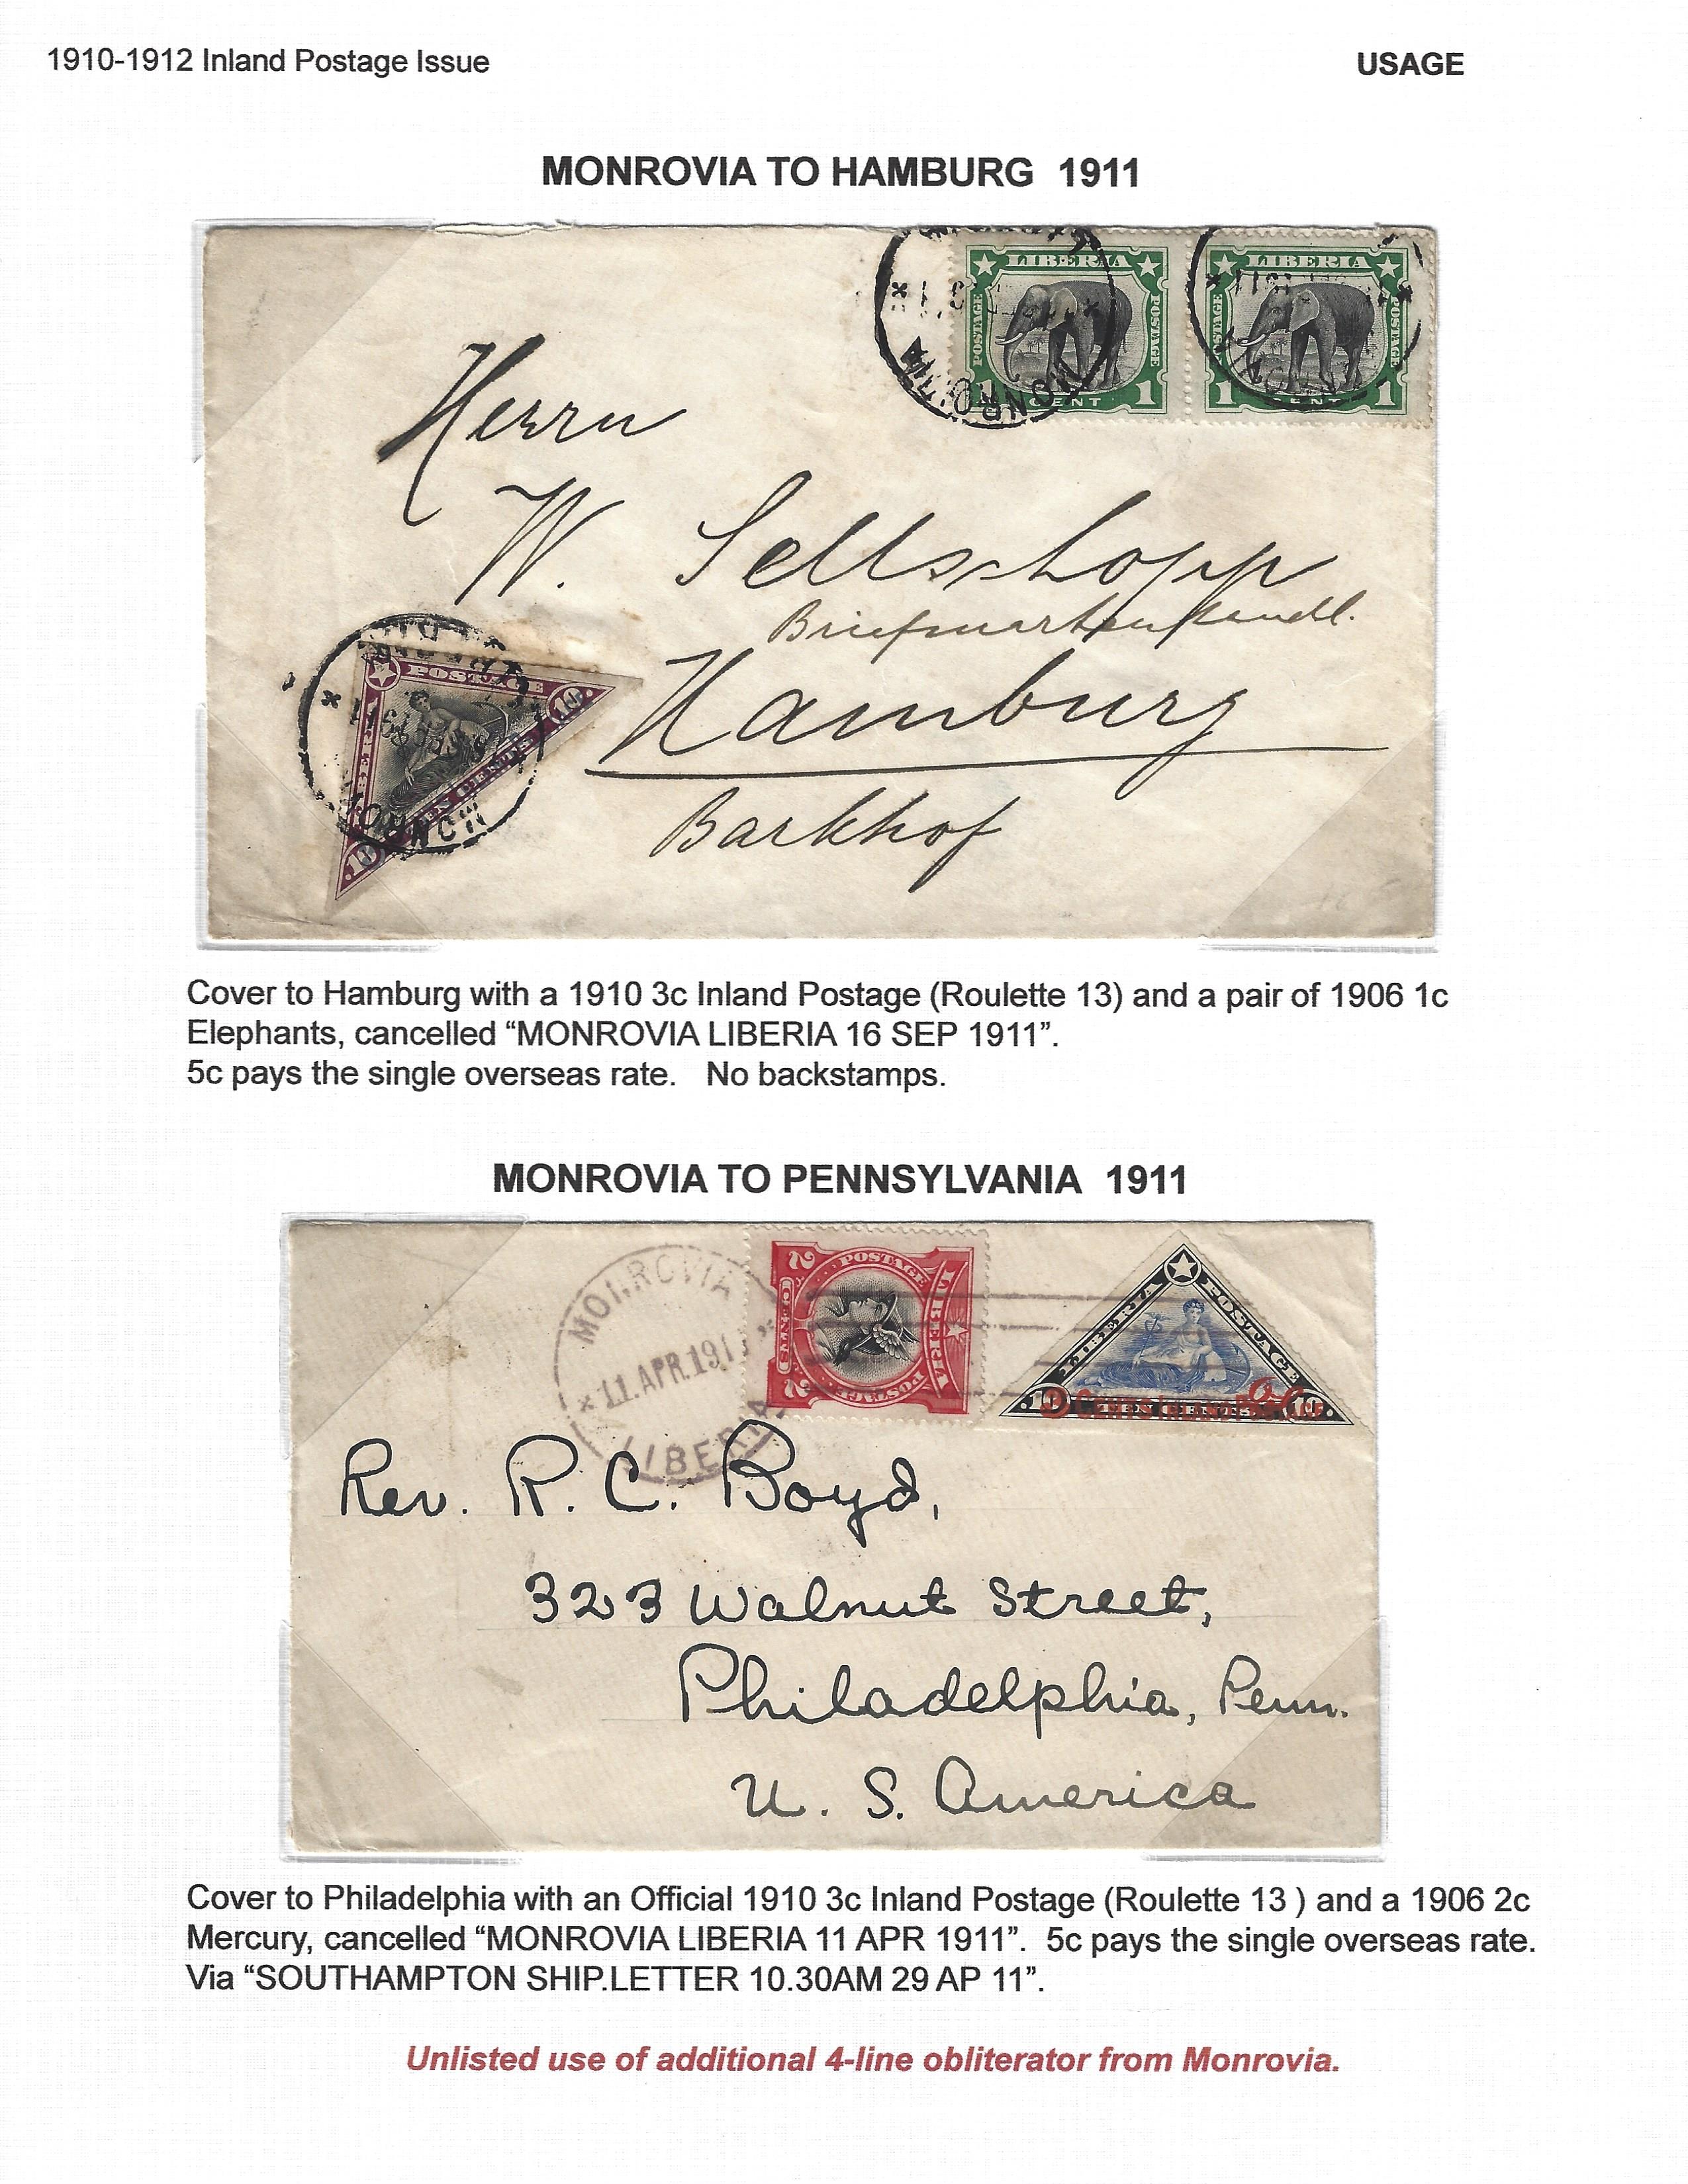 1910-1912 Inland Postage Issue
USAGE
MONROVIA TO HAMBURG 1911
LIBERIA
POSTAGE
POSTAGE
1 CENT 1
LIBERIA
POSTAGE
POSTAGE
1 CENT 1
MONROVIA
Herrn
W. Sellschopp
Briefmarkenhandl.
Hamburg
Barkhof
POSTAGE
LIBERIA
TEN CENTS
10
10
Cover to Hamburg with a 1910 3c Inland Postage (Roulette 13) and a pair of 1906 1c
Elephants, cancelled “MONROVIA LIBERIA 16 SEP 1911”.
5c pays the single overseas rate. No backstamps.
MONROVIA TO PENNSYLVANIA 1911
MONROVIA
11.APR.191
LIBERIA
LIBERIA
POSTAGE
POSTAGE
2 CENTS 2
LIBERIA POSTAGE
10 TEN CENTS 10
3 CENTS
Rev. R. C. Boyd,
323 Walnut Street,
Philadelphia, Penn.
U. S. America
Cover to Philadelphia with an Official 1910 3c Inland Postage (Roulette 13 ) and a 1906 2c
Mercury, cancelled “MONROVIA LIBERIA 11 APR 1911”. 5c pays the single overseas rate.
Via “SOUTHAMPTON SHIP.LETTER 10.30AM 29 AP 11”.
Unlisted use of additional 4-line obliterator from Monrovia.